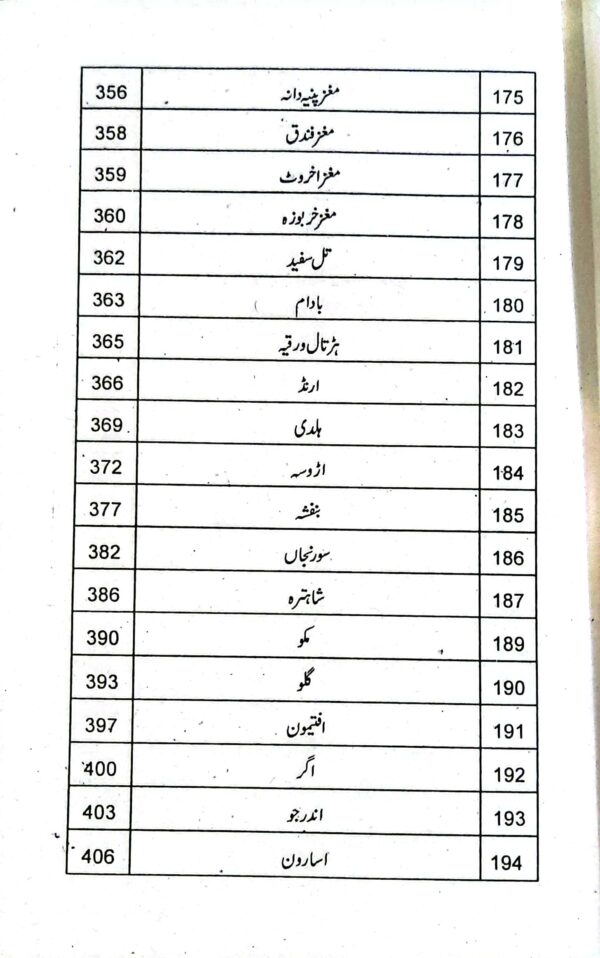 175 مغز پنبہ دانہ 356
176 مغز فندق 358
177 مغز اخروٹ 359
178 مغز خربوزہ 360
179 تل سفید 362
180 بادام 363
181 ہڑتال ورقیہ 365
182 ارنڈ 366
183 ہلدی 369
184 اڑوسہ 372
185 بنفشہ 377
186 سورنجاں 382
187 شاہترہ 386
189 مکو 390
190 گلو 393
191 افتیمون 397
192 اگر 400
193 اندرجو 403
194 اسارون 406